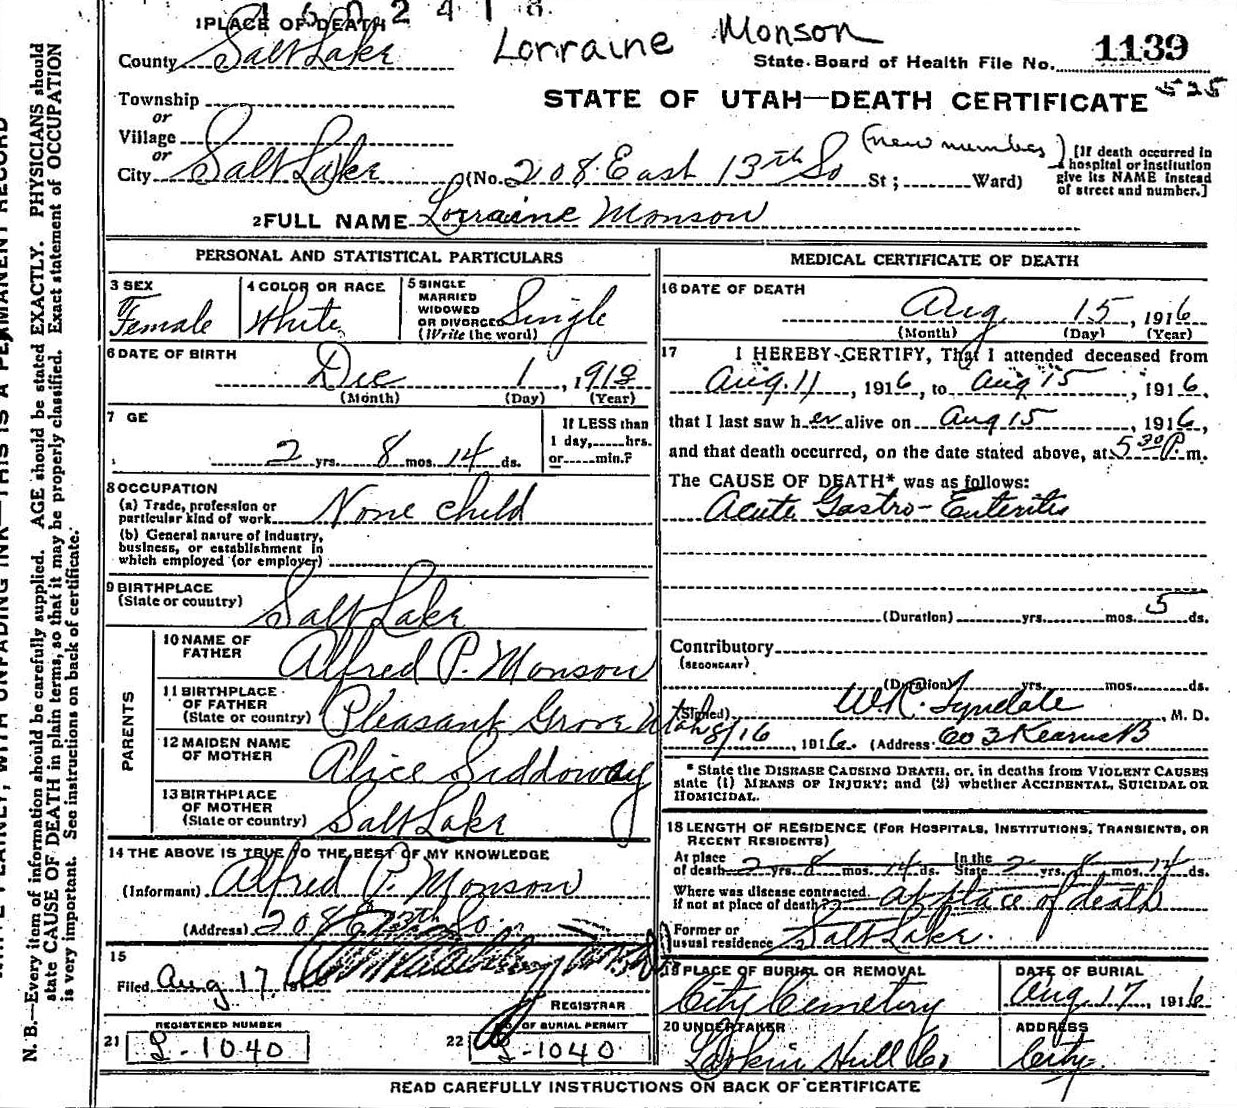 1 PLACE OF DEATH
Lorraine Monson
County Salt Lake
State Board of Health File No. 1139
525
Township
or
Village
or
City Salt Lake
STATE OF UTAH—DEATH CERTIFICATE
(No. 208 East 13th So (new number) St; Ward)
[If death occurred in
a hospital or institution
give its NAME instead
of street and number.]
2 FULL NAME Lorraine Monson
PERSONAL AND STATISTICAL PARTICULARS
3 SEX
Female
4 COLOR OR RACE
White
5 SINGLE
MARRIED
WIDOWED
OR DIVORCED
(Write the word)
Single
6 DATE OF BIRTH
Dec 1, 1913
(Month) (Day) (Year)
7 GE
2 yrs. 8 mos. 14 ds.
If LESS than
1 day, hrs.
or min.?
8 OCCUPATION
(a) Trade, profession or
particular kind of work None Child
(b) General nature of industry,
business, or establishment in
which employed (or employer)
9 BIRTHPLACE
(State or country) Salt Lake
PARENTS
10 NAME OF
FATHER Alfred P. Monson
11 BIRTHPLACE
OF FATHER
(State or country) Pleasant Grove Utah
12 MAIDEN NAME
OF MOTHER Alice Siddoway
13 BIRTHPLACE
OF MOTHER
(State or country) Salt Lake
14 THE ABOVE IS TRUE TO THE BEST OF MY KNOWLEDGE
(Informant) Alfred P. Monson
(Address) 208 E 13th So.
15
Filed Aug 17, 191
REGISTRAR
REGISTERED NUMBER
21 L-1040
NO. OF BURIAL PERMIT
22 L-1040
MEDICAL CERTIFICATE OF DEATH
16 DATE OF DEATH
Aug 15, 1916
(Month) (Day) (Year)
17 I HEREBY CERTIFY, That I attended deceased from
Aug. 11, 1916, to Aug 15, 1916,
that I last saw her alive on Aug 15, 1916,
and that death occurred, on the date stated above, at 5 30 P. m.
The CAUSE OF DEATH* was as follows:
Acute Gastro-Enteritis
(Duration) yrs. mos. 5 ds.
Contributory
(SECONDARY)
(Duration) yrs. mos. ds.
(Signed) W.R. Tyndale, M. D.
8/16, 1916. (Address 603 Kearns B
* State the DISEASE CAUSING DEATH, or, in deaths from VIOLENT CAUSES
state (1) MEANS OF INJURY; and (2) whether ACCIDENTAL, SUICIDAL OR
HOMICIDAL.
18 LENGTH OF RESIDENCE (FOR HOSPITALS, INSTITUTIONS, TRANSIENTS, OR
RECENT RESIDENTS)
At place
of death 2 yrs. 8 mos. 14 ds. In the
State 2 yrs. 8 mos. 14 ds.
Where was disease contracted
if not at place of death? at place of death
Former or
usual residence Salt Lake.
19 PLACE OF BURIAL OR REMOVAL
City Cemetery
DATE OF BURIAL
Aug 17, 1916
20 UNDERTAKER
Larkin Hull Co.
ADDRESS
City.
READ CAREFULLY INSTRUCTIONS ON BACK OF CERTIFICATE
N. B.—Every item of information should be carefully supplied. AGE should be stated EXACTLY. PHYSICIANS should
state CAUSE OF DEATH in plain terms, so that it may be properly classified. Exact statement of OCCUPATION
is very important. See instructions on back of certificate.